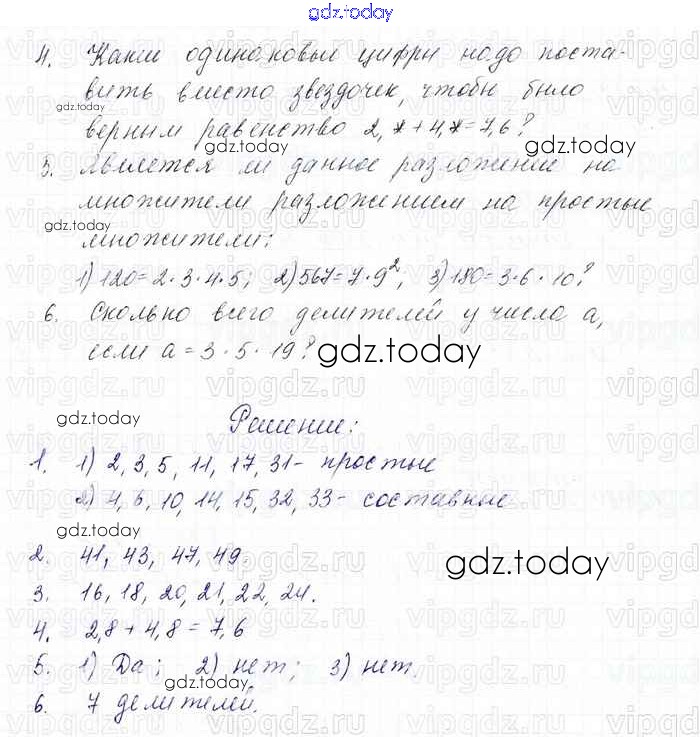 gdz.today
4. Какие одинаковые цифры надо поста-
вить вместо звездочек, чтобы было
gdz.today
верным равенство 2,* + 4,* = 7,6?
gdz.today
5. Является ли данное разложение на
gdz.today
множители разложением на простые
gdz.today
множители:
1) 120=2·3·4·5; 2) 567=7·9², 3) 180=3·6·10?
6. Сколько всего делителей у числа a,
если a = 3·5·19?
gdz.today
gdz.today
Решение:
1. 1) 2, 3, 5, 11, 17, 31 - простые
2) 4, 6, 10, 14, 15, 32, 33 - составные
gdz.today
2. 41, 43, 47, 49.
gdz.today
3. 16, 18, 20, 21, 22, 24.
4. 2,8 + 4,8 = 7,6
5. 1) Да; 2) нет; 3) нет.
gdz.today
6. 7 делителей.